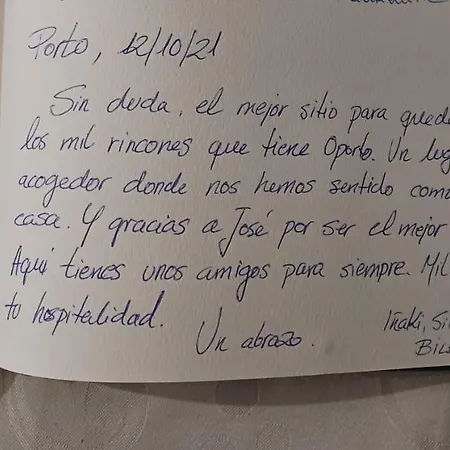 Porto, 12/10/21
Sin duda, el mejor sitio para queda
los mil rincones que tiene Oporto. Un lug
acogedor donde nos hemos sentido com
casa. Y gracias a José por ser el mejor
Aquí tienes unos amigos para siempre. Mil
tu hospitalidad.
Un abrazo.
Iñaki, Si
Bil